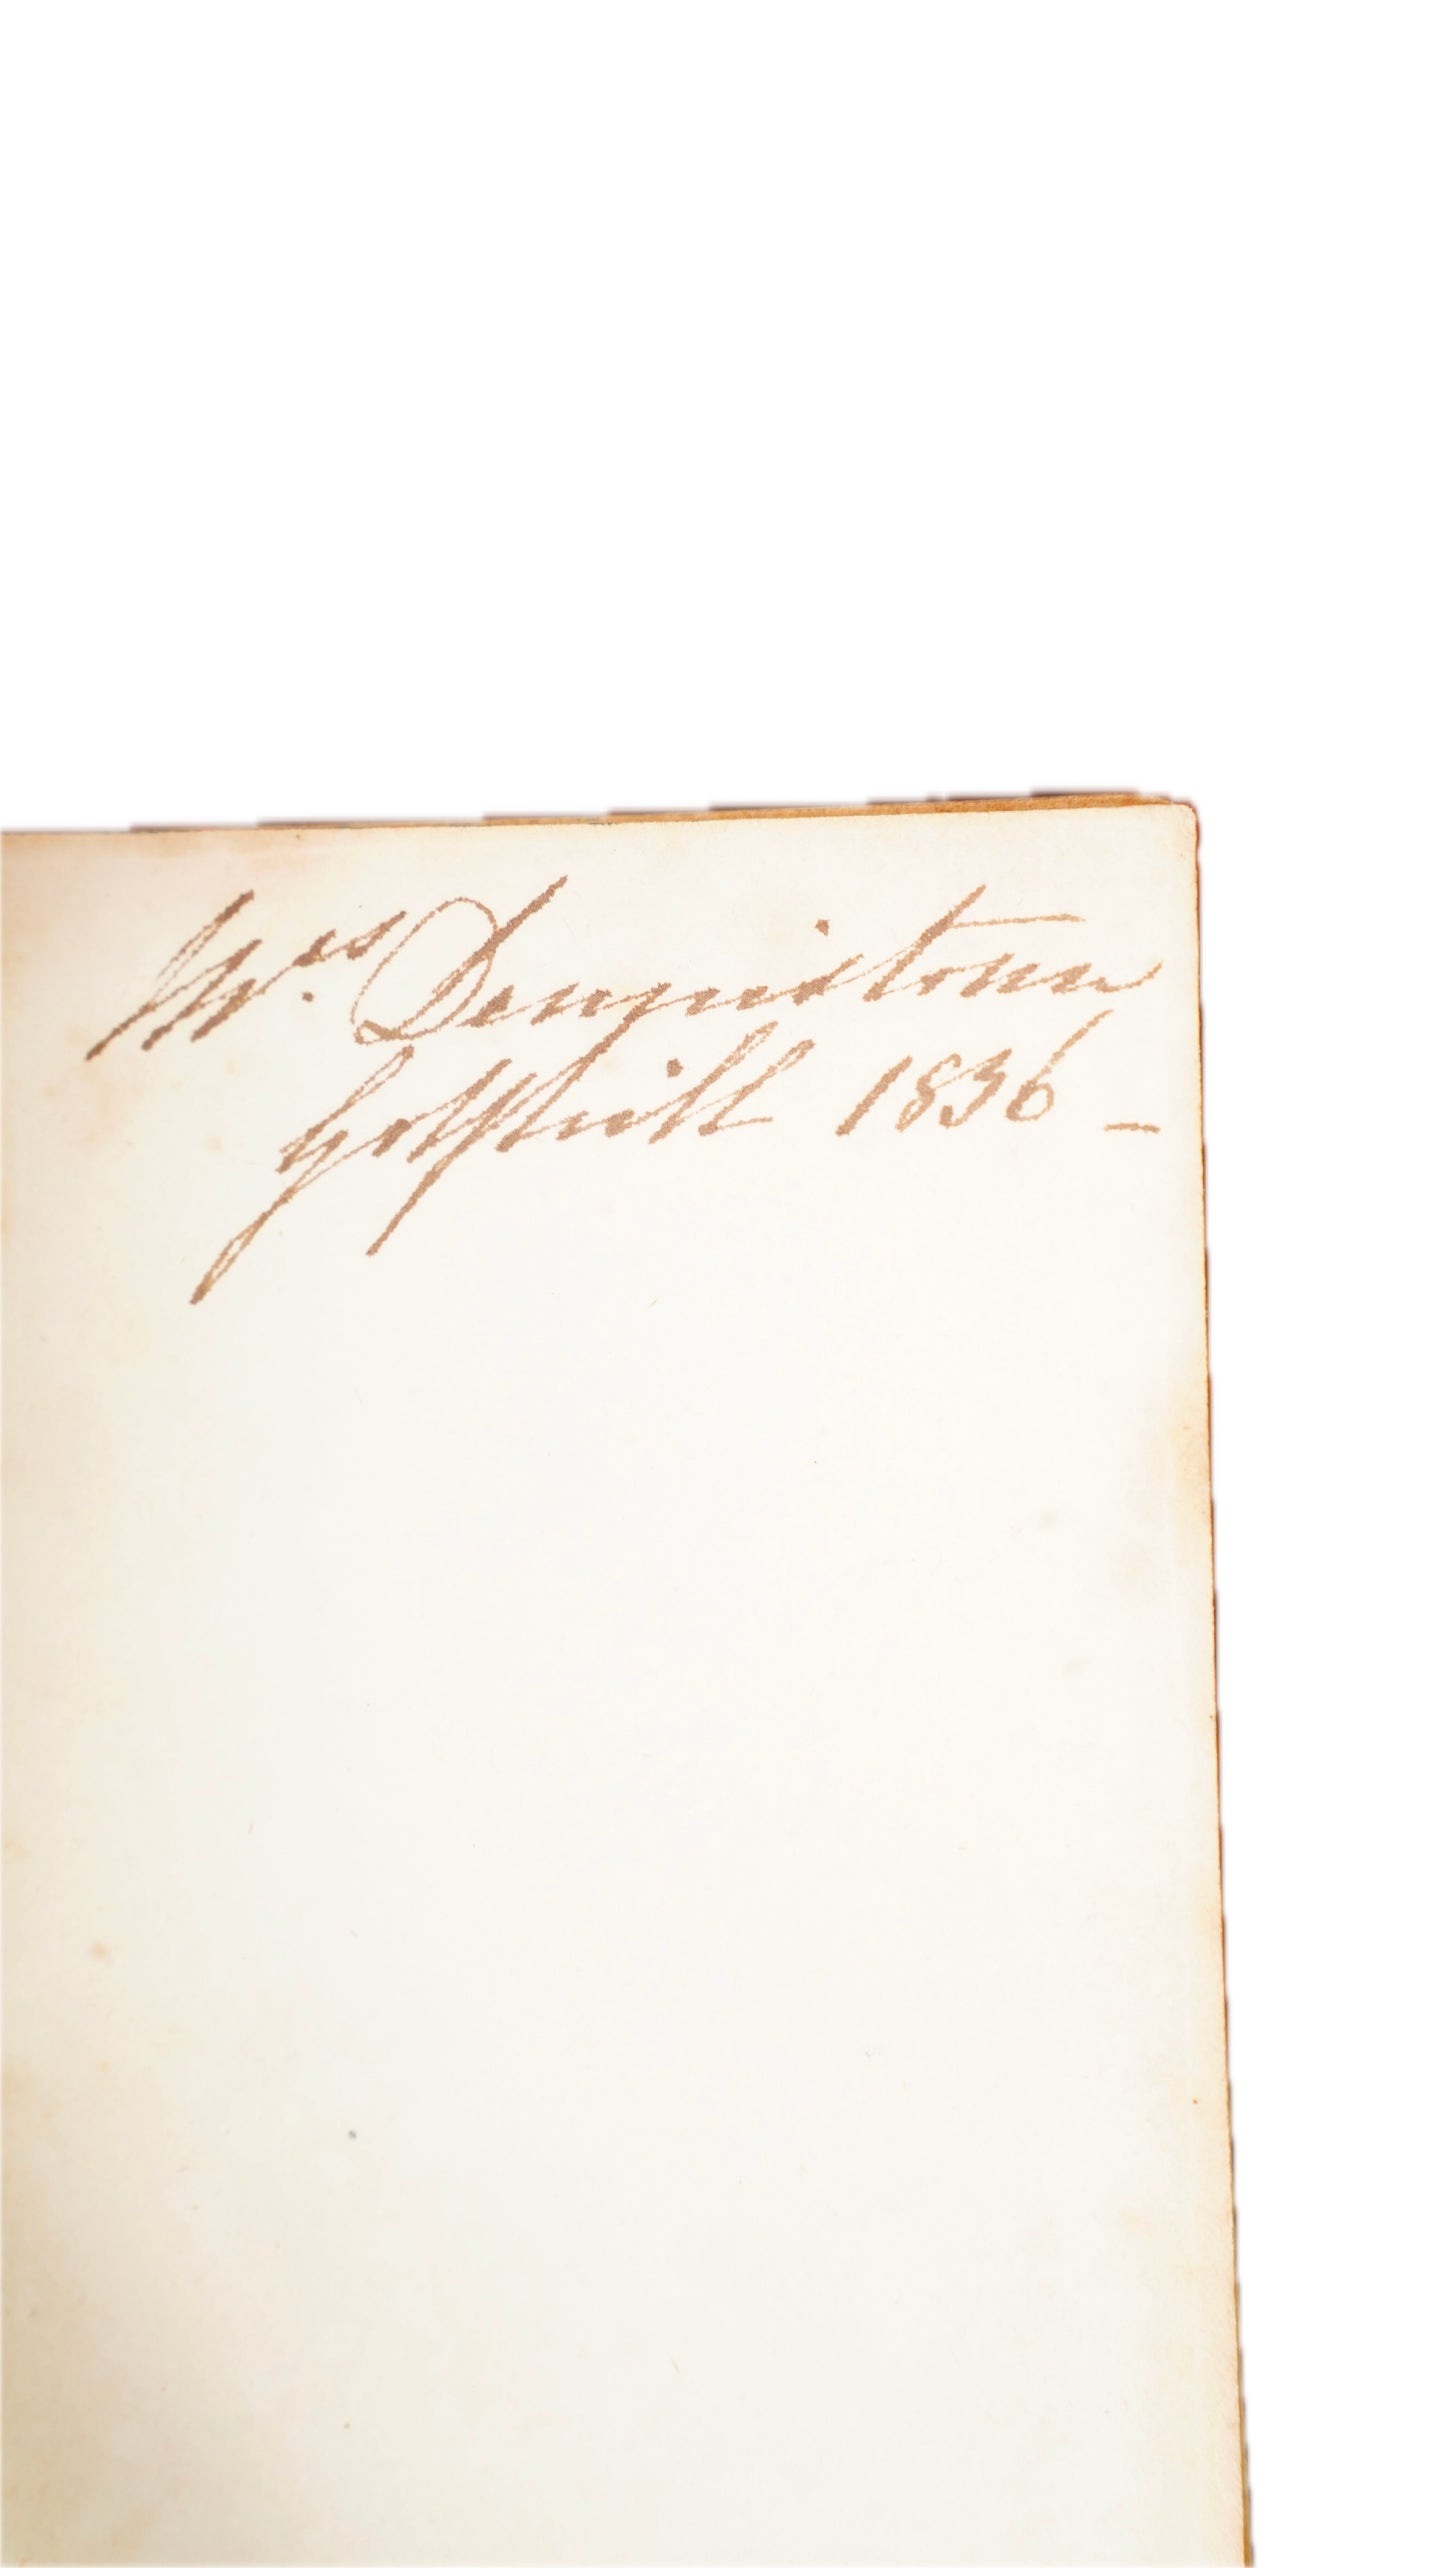 Mrs. Dennistoun
Golfhill 1836 –